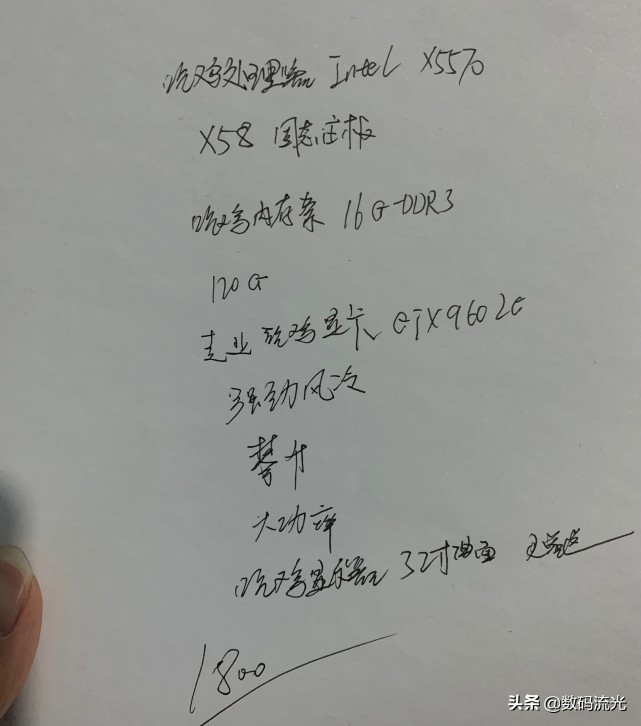 吃鸡处理器 Intel X5570
X58 固态主板
吃鸡内存条 16G DDR3
120G
专业吃鸡显卡 GTX960 2G
强劲风冷
攀升
大功率
吃鸡显示器 32寸曲面
1800
头条 @数码流光